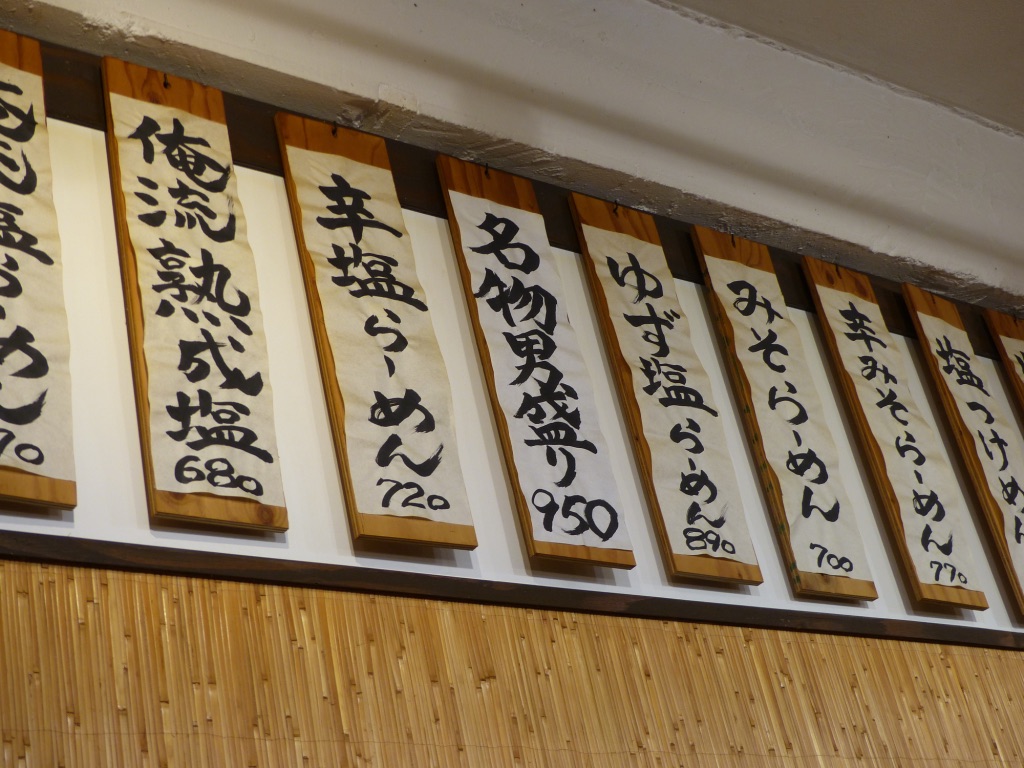 塩らーめん
俺流熟成塩
680
辛塩らーめん
720
名物男盛り
950
ゆず塩らーめん
890
みそらーめん
700
辛みそらーめん
770
塩つけめん